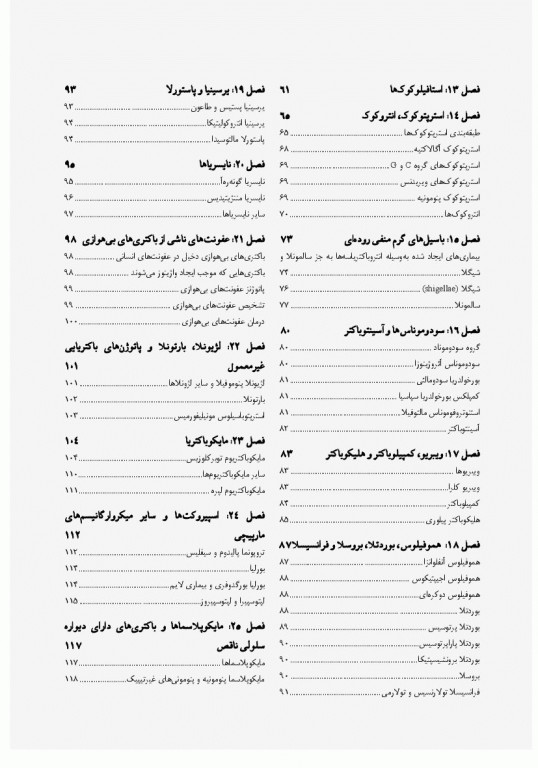 فصل ۱۳: استافیلوکوک‌ها ۶۱
فصل ۱۴: استرپتوکوک، انتروکوک ۶۵
طبقه‌بندی استرپتوکوک‌ها ۶۵
استرپتوکوک آگالاکتیه ۶۸
استرپتوکوک‌های گروه C و G ۶۹
استرپتوکوک‌های ویریدنس ۶۹
استرپتوکوک پنومونیه ۶۹
انتروکوک‌ها ۷۰
فصل ۱۵: باسیل‌های گرم منفی روده‌ای ۷۳
بیماری‌های ایجاد شده به‌وسیله انتروباکتریاسه‌ها به جز سالمونلا و
شیگلا ۷۴
شیگلا (shigellae) ۷۶
سالمونلا ۷۷
فصل ۱۶: سودوموناس‌ها و آسینتوباکتر ۸۰
گروه سودوموناد ۸۰
سودوموناس آئروژینوزا ۸۰
بورخولدریا سودومالئی ۸۱
کمپلکس بورخولدریا سپاسیا ۸۱
استنوتروفوموناس مالتوفیلا ۸۱
آسینتوباکتر ۸۲
فصل ۱۷: ویبریو، کمپیلوباکتر و هلیکوباکتر ۸۳
ویبریوها ۸۳
ویبریو کلرا ۸۳
کمپیلوباکتر ۸۴
هلیکوباکتر پیلوری ۸۵
فصل ۱۸: هموفیلوس، بوردتلا، بروسلا و فرانسیسلا ۸۷
هموفیلوس آنفلوانزا ۸۷
هموفیلوس اجیپتیکوس ۸۸
هموفیلوس دوکره‌ای ۸۸
بوردتلا ۸۸
بوردتلا پرتوسیس ۸۹
بوردتلا پاراپرتوسیس ۹۰
بوردتلا برونشیسپتیکا ۹۰
بروسلا ۹۰
فرانسیسلا تولارنسیس و تولارمی ۹۱
فصل ۱۹: یرسینیا و پاستورلا ۹۳
یرسینیا پستیس و طاعون ۹۳
یرسینیا انتروکولیتیکا ۹۴
پاستورلا مالتوسیدا ۹۴
فصل ۲۰: نایسریاها ۹۵
نایسریا گونه‌رآ ۹۵
نایسریا مننژیتیدیس ۹۶
سایر نایسریاها ۹۷
فصل ۲۱: عفونت‌های ناشی از باکتری‌های بی‌هوازی ۹۸
باکتری‌های بی‌هوازی دخیل در عفونت‌های انسانی ۹۸
باکتری‌هایی که موجب ایجاد واژینوز می‌شوند ۹۸
پاتوژنز عفونت‌های بی‌هوازی ۹۹
تشخیص عفونت‌های بی‌هوازی ۹۹
درمان عفونت‌های بی‌هوازی ۱۰۰
فصل ۲۲: لژیونلا، بارتونلا و پاتوژن‌های باکتریایی
غیرمعمول ۱۰۱
لژیونلا پنوموفیلا و سایر لژونلاها ۱۰۱
بارتونلا ۱۰۲
استرپتوباسیلوس مونیلیفورمیس ۱۰۳
فصل ۲۳: مایکوباکتریا ۱۰۴
مایکوباکتریوم توبرکلوزیس ۱۰۴
سایر مایکوباکتریوم‌ها ۱۱۰
مایکوباکتریوم لپره ۱۱۱
فصل ۲۴: اسپیروکت‌ها و سایر میکروارگانیسم‌های
مارپیچی ۱۱۲
ترپونما پالیدوم و سیفلیس ۱۱۲
بورلیا ۱۱۴
بورلیا بورگدوفری و بیماری لایم ۱۱۴
لپتوسپیرا و لپتوسپیروز ۱۱۵
فصل ۲۵: مایکوپلاسماها و باکتری‌های دارای دیواره
سلولی ناقص ۱۱۷
مایکوپلاسماها ۱۱۷
مایکوپلاسما پنومونیه و پنومونی‌های غیرتیپیک ۱۱۸